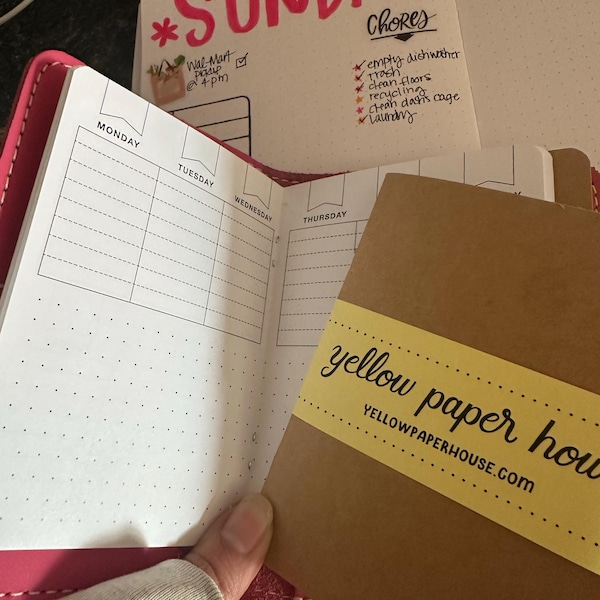 Chores
Wal-Mart
pickup
@ 4pm
empty dishwasher
trash
clean floors
recycling
clean dash's cage
laundry
MONDAY
TUESDAY
WEDNESDAY
THURSDAY
yellow paper hou
YELLOWPAPERHOUSE.com